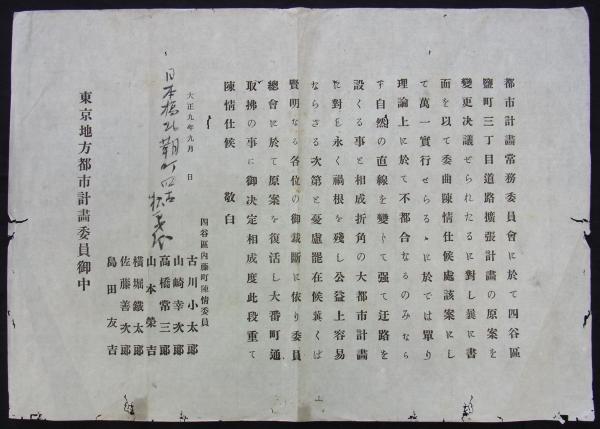 都市計畫常務委員會に於て四谷區
鹽町三丁目道路擴張計畫の原案を
變更決議せられたるに對し曩に書
面を以て委曲陳情仕候處該案にし
て萬一實行せらるゝに於ては單り
理論上に於て不都合なるのみなら
ず自然の直線を變じて强て迂路を
設くる事と相成折角の大都市計畫
に對し永く禍根を殘し公益上容易
ならざる次第と憂慮罷在候冀くば
賢明なる各位の御裁斷に依り委員
總會に於て原案を復活し大番町通
取拂の事に御決定相成度此段重て
陳情仕候 敬白
大正九年九月 日
日本橋
四谷區內藤町陳情委員
古川小太郞
山崎幸次郞
髙橋常三郞
山本榮吉
橫堀鐵太郞
佐藤善次郞
島田友吉
東京地方都市計畫委員御中